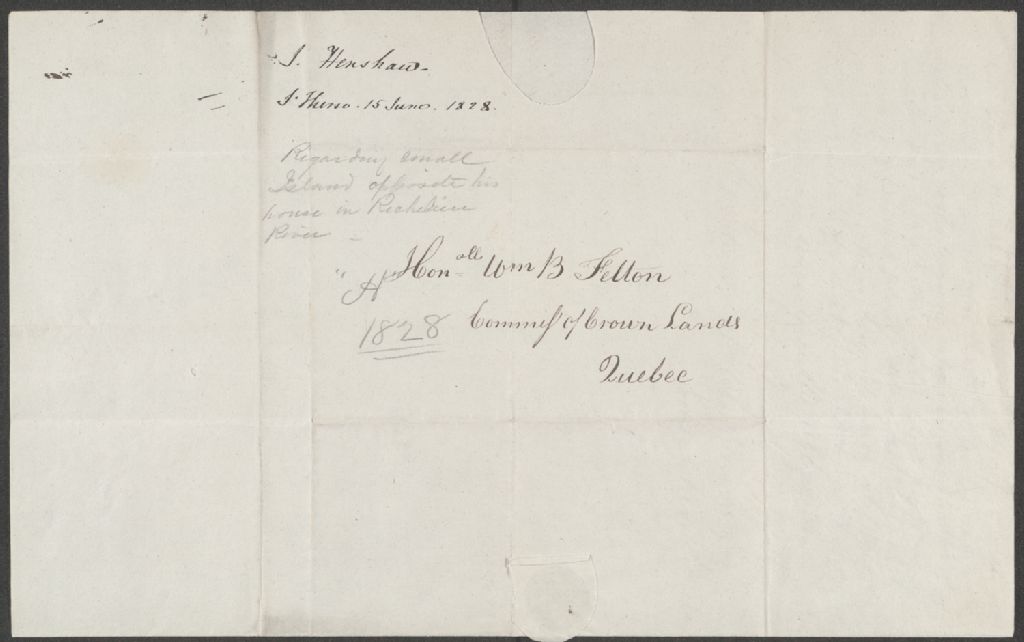 J. Henshaw.
15 June. 1828.
Regarding small
Island opposite his
house in Richelieu
River –
"H"
1828
Hon.all Wm B Felton
Commiss of Crown Lands
Quebec